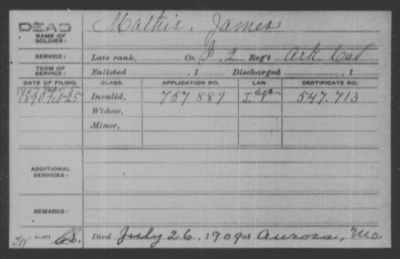 DEAD
NAME OF SOLDIER:
Mathis, James
SERVICE:
Late rank, Co. B, 2 Reg't Ark Cav
TERM OF SERVICE:
Enlisted , 1 Discharged , 1
DATE OF FILING. CLASS. APPLICATION NO. LAW. CERTIFICATE NO.
1890 Invalid, 757 889 547.713
Widow,
Minor,
ADDITIONAL SERVICES:
REMARKS:
Died July 26, 1909 at Aurora, Mo.